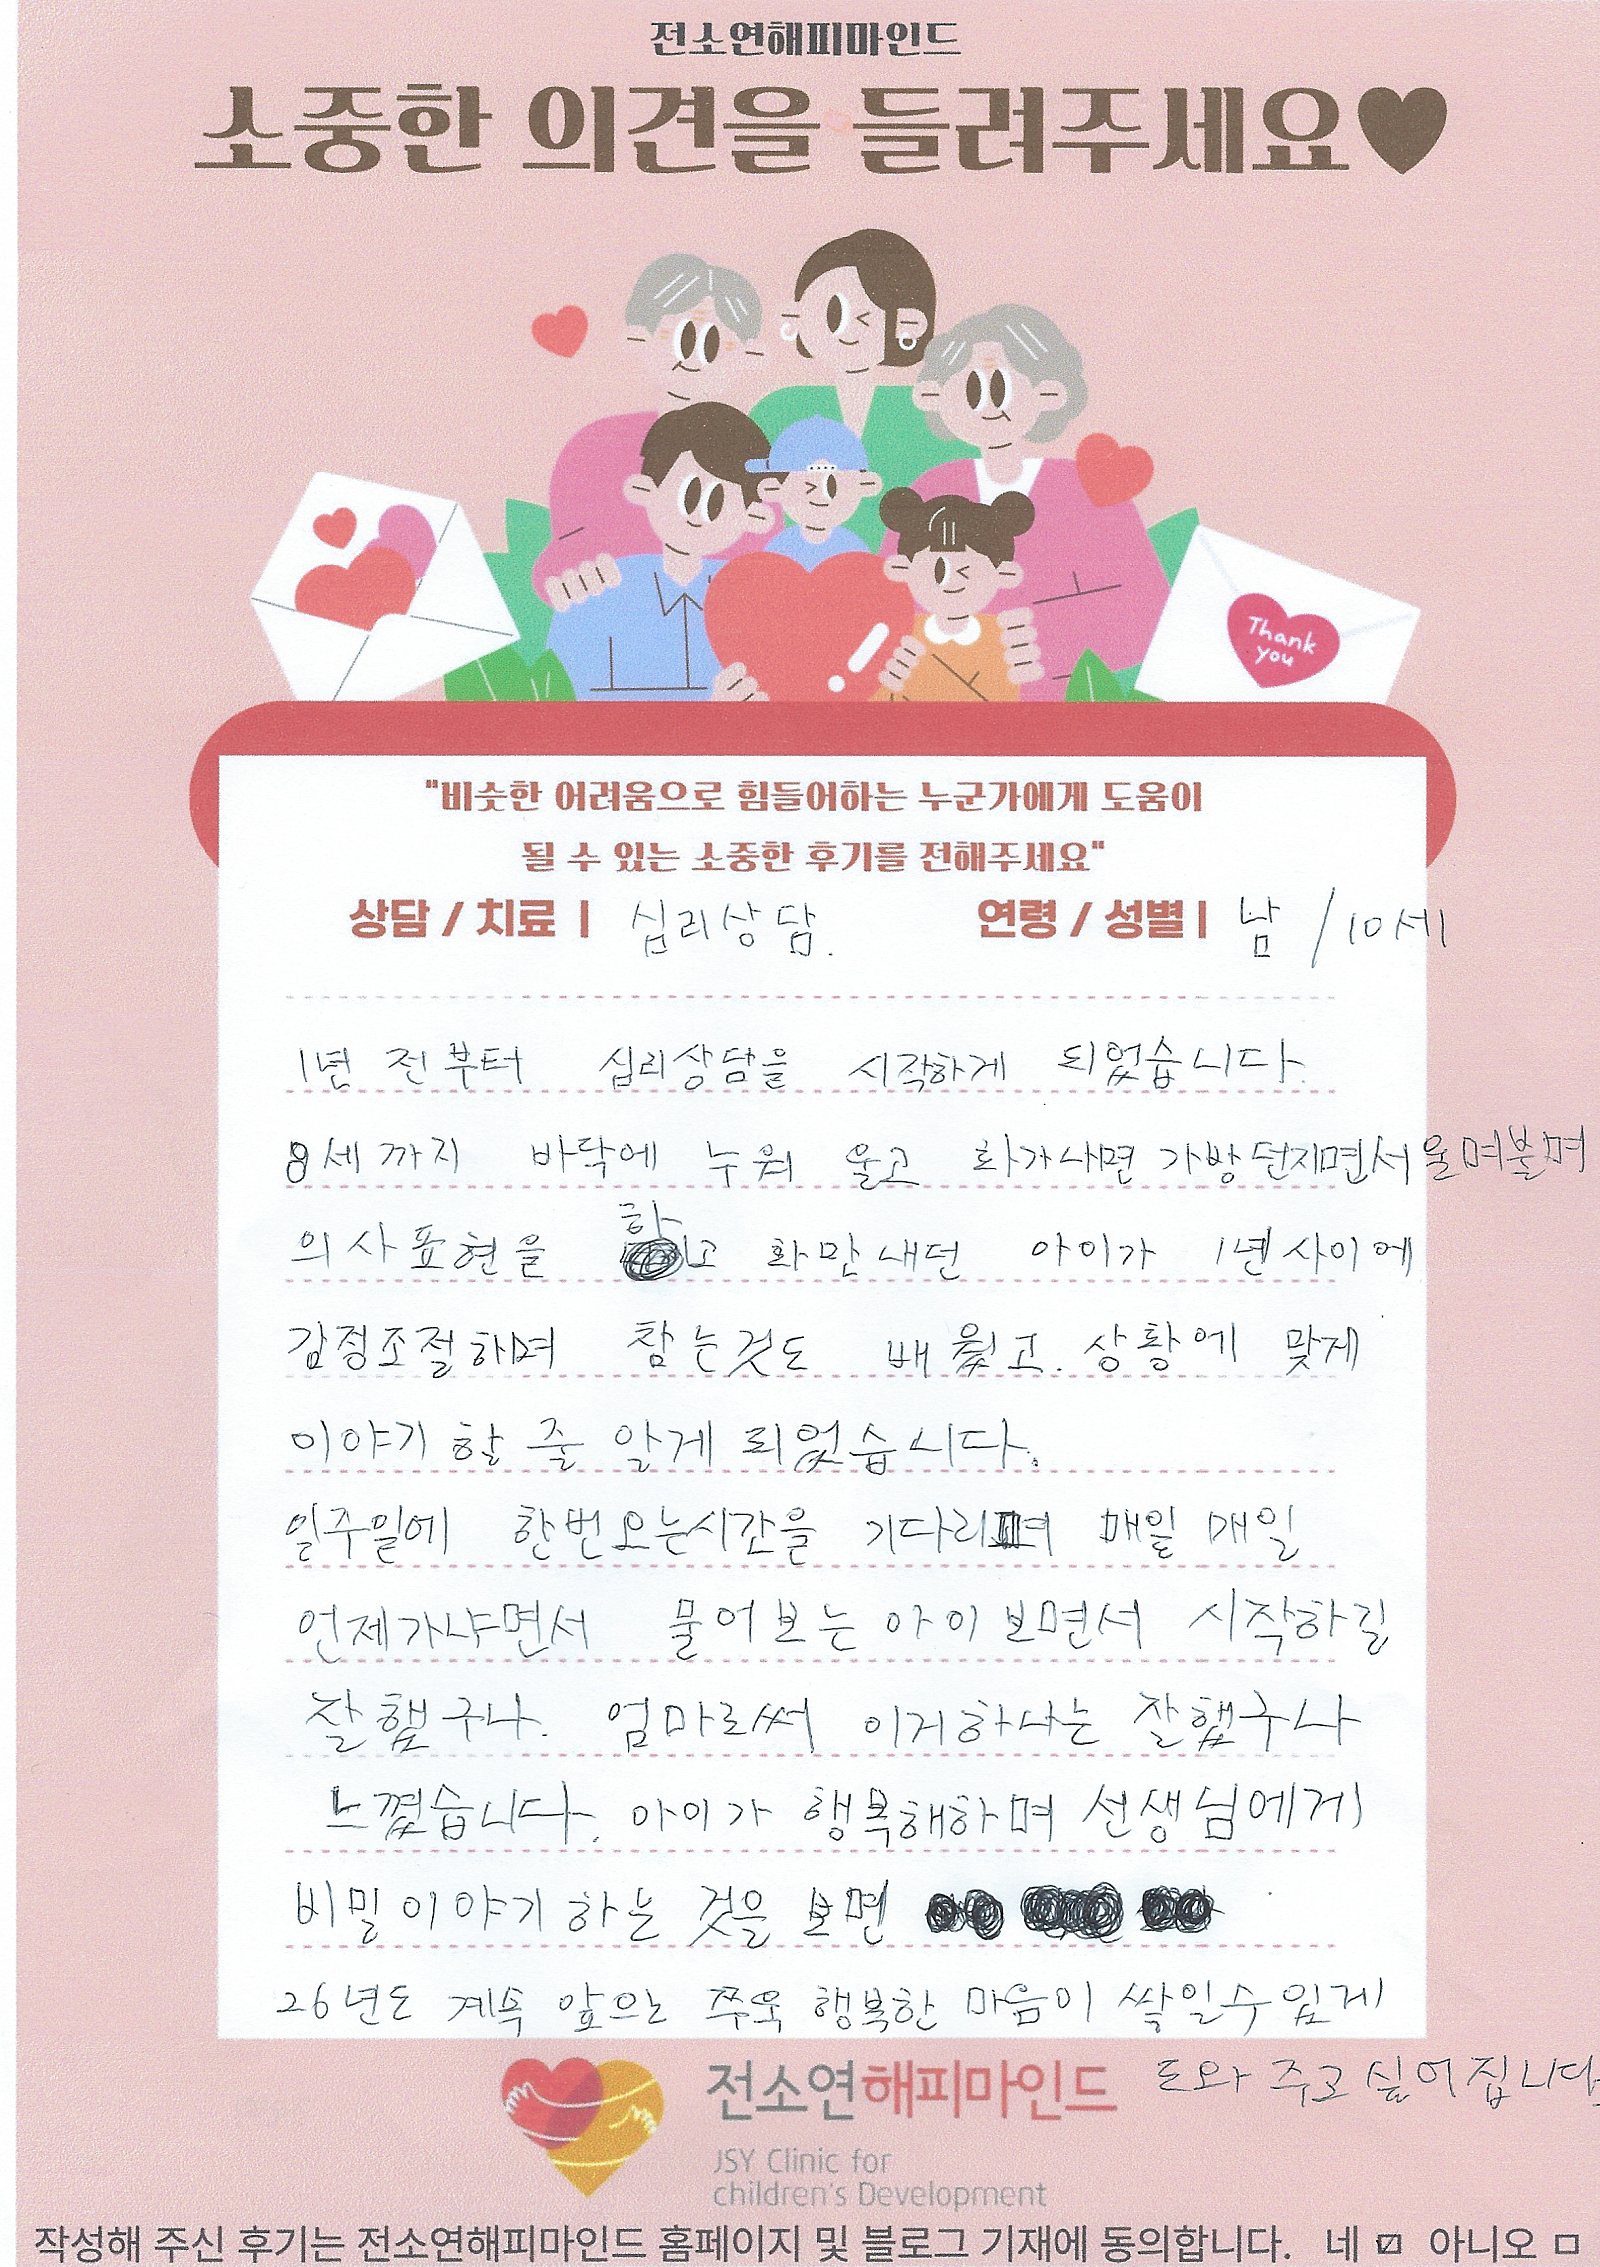 전소연해피마인드
소중한 의견을 들려주세요♥
Thank
you
"비슷한 어려움으로 힘들어하는 누군가에게 도움이
될 수 있는 소중한 후기를 전해주세요"
상담 / 치료 | 심리상담. 연령 / 성별 | 남 / 10세
1년 전부터 심리상담을 시작하게 되었습니다.
8세까지 바닥에 누워 울고 화가나면 가방 던지면서 울며불며
의사표현을 하고 화만내던 아이가 1년사이에
감정조절하며 참는것도 배웠고. 상황에 맞게
이야기 할 줄 알게 되었습니다.
일주일에 한번오는시간을 기다리며 매일 매일
언제가냐면서 물어보는 아이보면서 시작하길
잘했구나. 엄마로써 이거하나는 잘했구나
느꼈습니다. 아이가 행복해하며 선생님에게
비밀이야기 하는 것을 보면
26년도 계속 앞으로 쭈욱 행복한 마음이 싹일수있게
도와 주고 싶어집니다.
전소연해피마인드
JSY Clinic for
children's Development
작성해 주신 후기는 전소연해피마인드 홈페이지 및 블로그 기재에 동의합니다. 네 ☑ 아니오 □